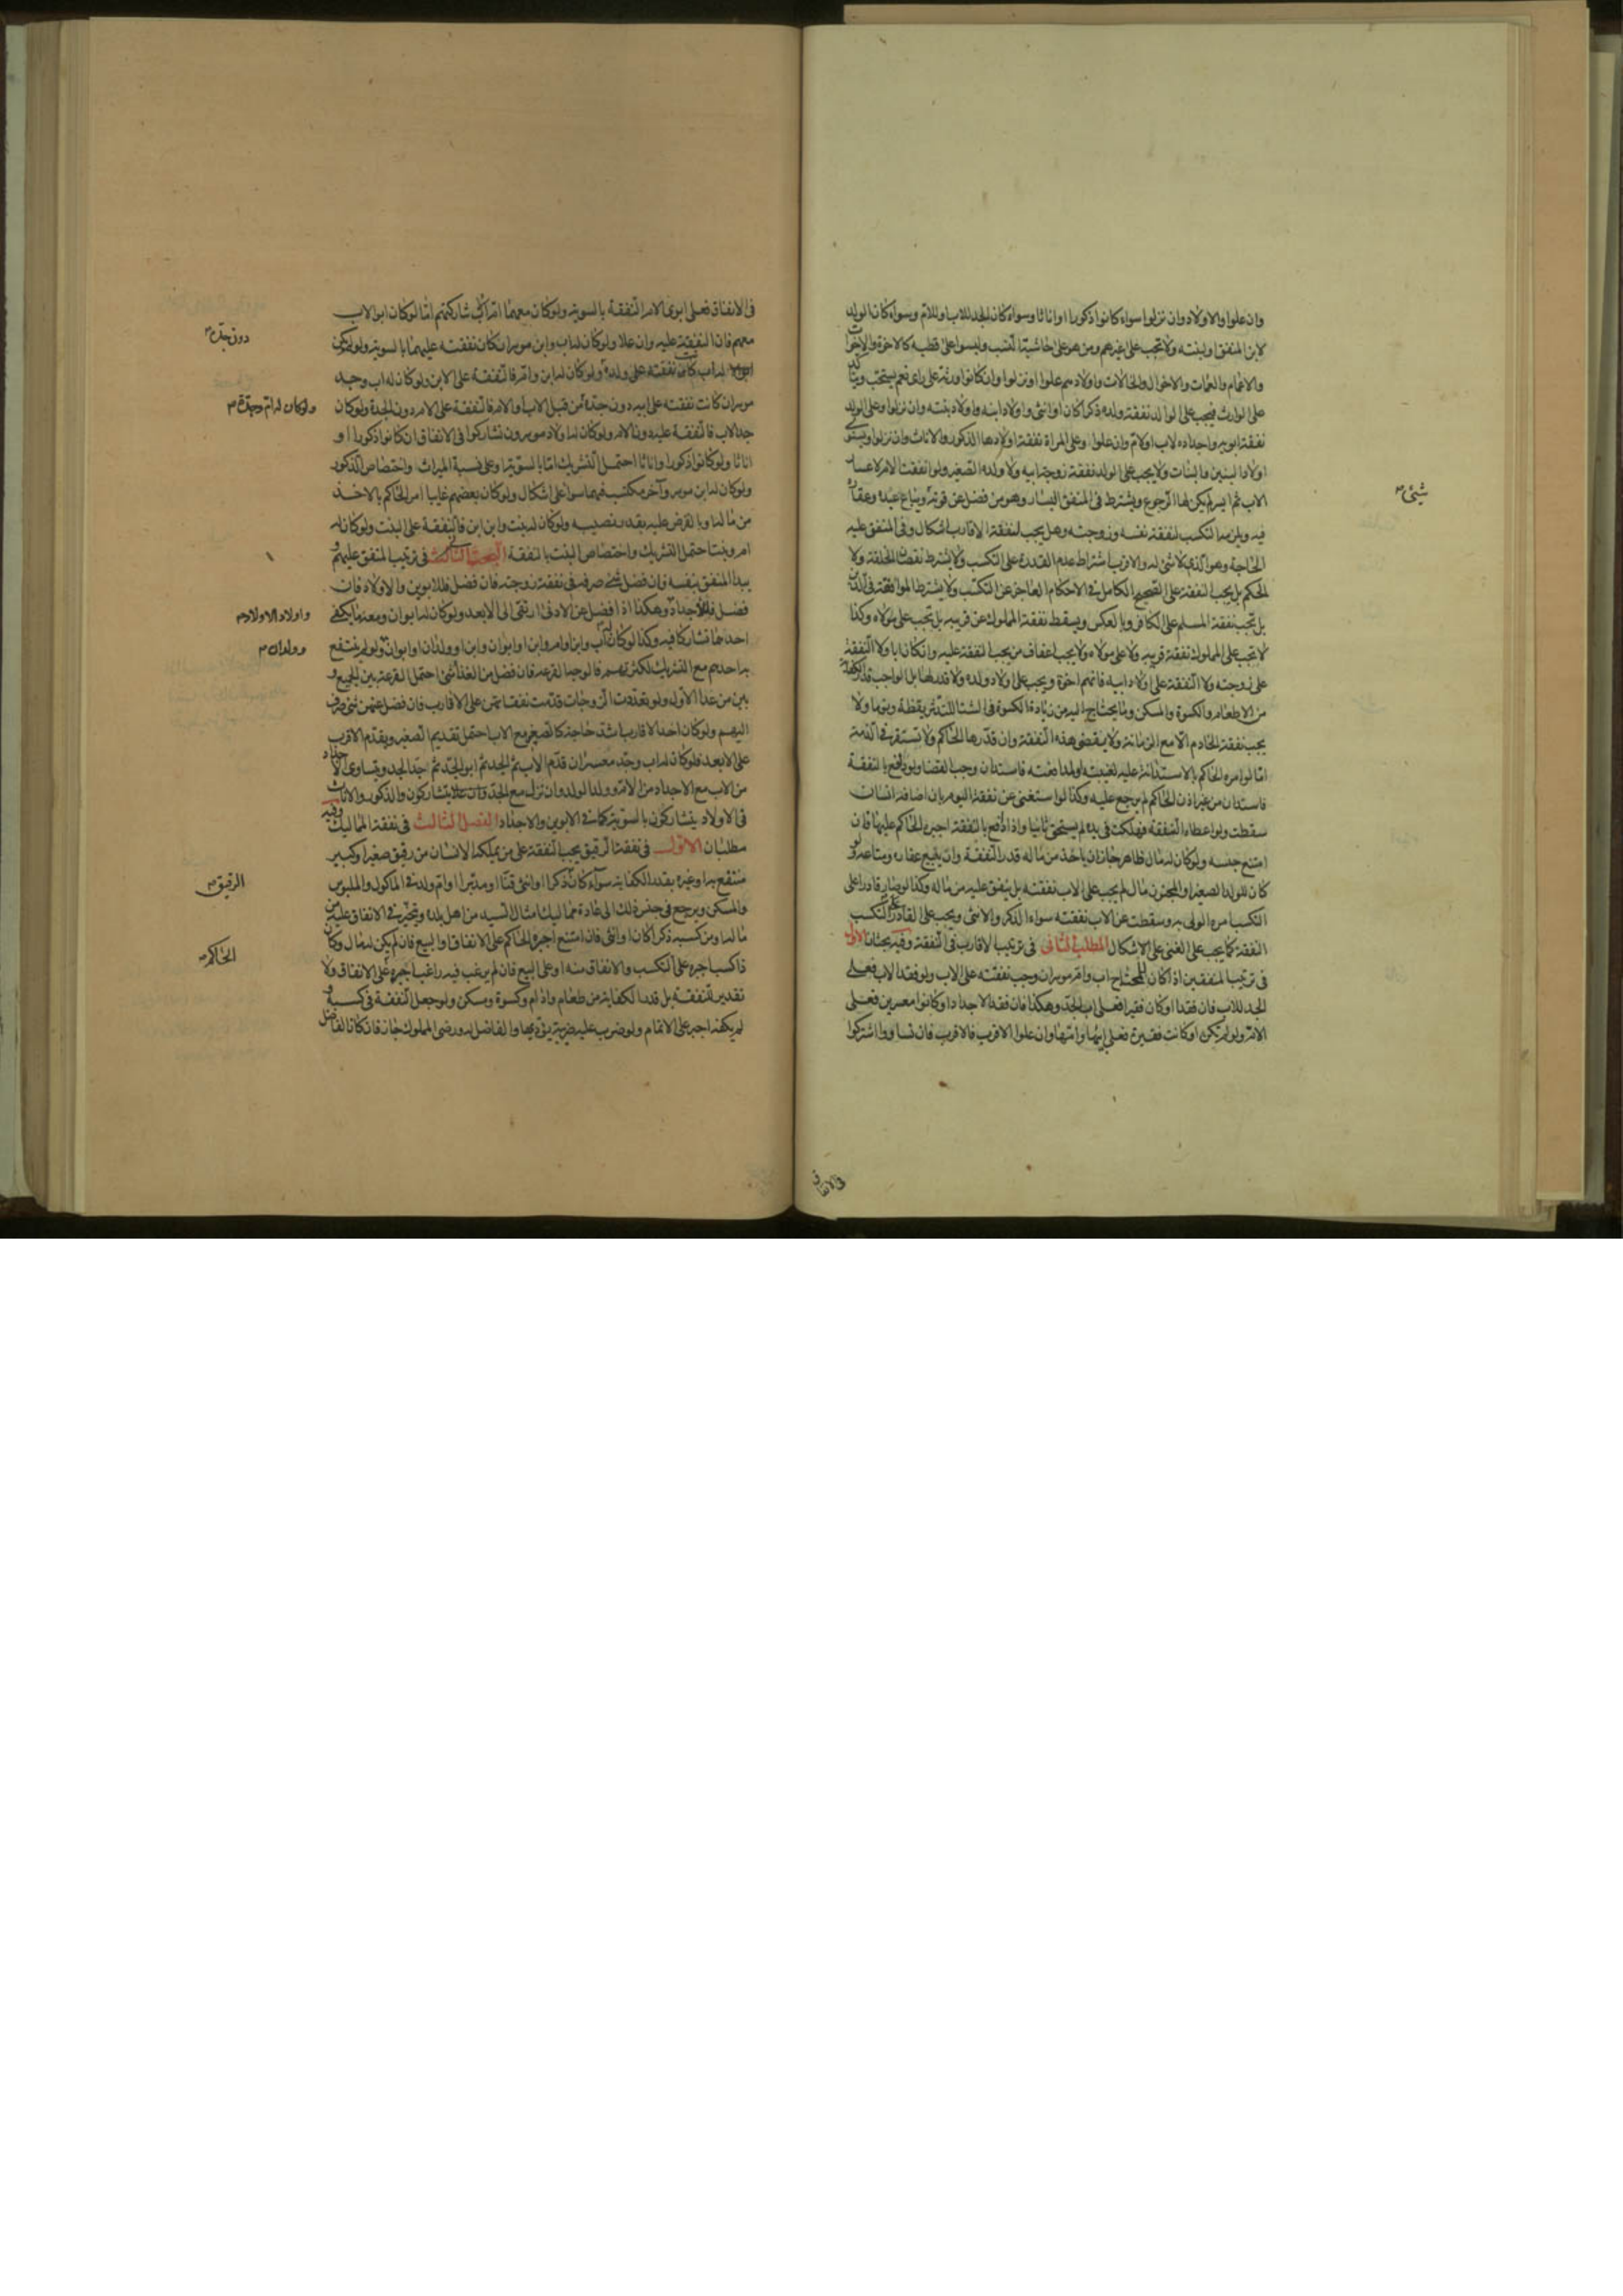 وان علوا والاولاد وان نزلوا سواء كانوا ذكورا او اناثا وسواء كان الجد للاب او للام وسواء كان الولد
لابن المنفق او بنته ولا تجب على غيرهم ومن هو على حاشية النسب وليسوا على قطبه كالاخوة والاخوات
والاعمام والعمات والاخوال والخالات واولادهم علوا او نزلوا وان كانوا ورثة على راى نعم يستحب ويتاكد
على الوارث فيجب على الوالد نفقة ولده ذكرا كان او انثى واولاد ابنه واولاد بنته وان نزلوا وعلى الولد
نفقة ابويه واجداده لاب او لام وان علوا وعلى المراة نفقة اولادها الذكور والاناث وان نزلوا ويستوى
اولاد البنين والبنات ولا يجب على الولد نفقة زوجة ابيه ولا ولده الصغير ولو انفقت الام لاعسار
الاب ثم ايسر لم يكن لها الرجوع ويشترط فى المنفق اليسار وهو من فضل عن قوته ويباع عبده وعقاره
فيه ويلزمه التكسب لنفقة نفسه وزوجته وهل يجب لنفقة الاقارب اشكال وفى المنفق عليه
الحاجة وهو الذى لا شى له والاقرب اشتراط عدم القدرة على التكسب ولا يشترط نقصان الخلقة ولا
الحكم بل يجب النفقة على الصحيح الكامل فى الاحكام العاجز عن التكسب ولا يشترط الموافقة فى الدين
بل تجب نفقة المسلم على الكافر وبالعكس ويسقط نفقة المملوك عن قريبه بل تجب على مولاه وكذا
لا تجب على المملوك نفقة قريبه ولا على مولاه ولا يجب اعفاف من يجب النفقة عليه وان كان ابا ولا النفقة
على زوجته ولا النفقة على اولاد ابيه فانهم اخوة ويجب على اولاد ولده ولا قدر لها بل الواجب قدر الكفاية
من الاطعام والكسوة والمسكن وما يحتاج اليه من زيادة الكسوة فى الشتا للتدثر يقظة ونوما ولا
يجب نفقة الخادم الا مع الزمانة ولا يقضى هذه النفقة وان قدرها الحاكم ولا تستقر فى الذمة
اما لو امره الحاكم بالاستدانة عليه لغيبته او لمدافعته فاستدان وجب القضا ولو دافع بالنفقة
فاستدان من غير اذن الحاكم لم يرجع عليه وكذا لو استغنى عن نفقة اليوم بان اضافه انسان
سقطت ولو اعطاه النفقة فهلكت فى يده لم يستحق ثانيا واذا دافع بالنفقة اجبره الحاكم عليها فان
امتنع حبسه ولو كان له مال ظاهر جاز ان ياخذ من ماله قدر النفقة وان يبيع عقاره ومتاعه ولو
كان للولد الصغير او المجنون مال لم يجب على الاب نفقته بل ينفق عليه من ماله وكذا لو صار قادرا على
التكسب امره الولى به وسقطت عن الاب نفقته سواء الذكر والانثى ويجب على القادر على التكسب
النفقة كما يجب على الغنى على الاشكال المطلب الثانى فى ترتيب الاقارب فى النفقة وفيه بحثان الاول
فى ترتيب المنفقين اذا كان للمحتاج اب وام موسران وجب نفقته على الاب ولو فقد الاب فعلى
الجد للاب فان فقد او كان فقيرا فعلى اب الجد وهكذا فان فقد الاجداد او كانوا معسرين فعلى
الام ولو لم تكن او كانت فقيرة فعلى ابيها وامها وان علوا الاقرب فالاقرب فان تساووا اشتركوا
شيئ
فى الانفاق
فى الانفاق فعلى ابوى الام النفقة بالسوية ولو كان معهما ام الاب شاركتهم اما لو كان ابو الاب
معهم فان النفقة عليه وان علا ولو كان له اب وابن موسران كان نفقته عليهما بالسوية ولو لم يكن
له اب كانت نفقته على ولده ولو كان له ابن وام فالنفقة على الابن ولو كان له اب وجد
موسران كانت نفقته على ابيه دون جده من قبل الاب او الام فالنفقة على الام دون الجدة ولو كان
جد الاب فالنفقة عليه دون الام ولو كان له اولاد موسرون تشاركوا فى الانفاق ان كانوا ذكورا او
اناثا ولو كانوا ذكورا واناثا احتمل التشريك اما بالسوية او على نسبة الميراث واختصاص الذكور
ولو كان له ابن موسر وآخر مكتسب فهما سواء على اشكال ولو كان بعضهم غايبا امر الحاكم بالاخذ
من ماله او بالقرض عليه بقدر نصيبه ولو كان له بنت وابن ابن فالنفقة على البنت ولو كان له
ام وبنت احتمل التشريك واختصاص البنت بالنفقة البحث الثانى فى ترتيب المنفق عليهم و
يبدا المنفق بنفسه فان فضل شئ صرفه فى نفقة زوجته فان فضل فللابوين والاولاد فان
فضل فللاجداد وهكذا اذا فضل عن الادنى ارتقى الى الابعد ولو كان له ابوان ومعه ما يكفى
احدهما تشاركا فيه وكذا لو كان له اب وابن او ام وابن او ابوان وابن او ولدان او ابوان ولو لم ينتفع
به احدهم مع التشريك لكثرتهم فالوجه القرعة فان فضل من الغذا شئ احتمل القرعة بين الجميع و
بين من عدا الاول ولو تعددت الزوجات قدمت نفقاتهن على الاقارب فان فضل عنهن شئ صرف
اليهم ولو كان احد الاقارب اشد حاجة كالصغير مع الاب احتمل تقديم الصغير ويقدم الاقرب
على الابعد فلو كان له اب وجد معسران قدم الاب ثم الجد ثم ابو الجد ثم جد الجد ويتساوى الاجداد
من الاب مع الاجداد من الام وولد الولد وان نزل مع الجد يتشاركون والذكور والاناث
فى الاولاد يتشاركون بالسوية كما فى الابوين والاجداد الفصل الثالث فى نفقة المماليك وفيه
مطلبان الاول فى نفقة الرقيق يجب النفقة على من يملكه الانسان من رقيق صغير او كبير
منتفع به او غيره بقدر الكفاية سواء كان ذكرا او انثى قنا او مدبرا او ام ولد فى الماكول والملبوس
والمسكن ويرجع فى جنس ذلك الى عادة مماليك امثال السيد من اهل بلده ويتخير فى الانفاق عليه من
ماله او من كسبه ذكرا كان او انثى فان امتنع اجبره الحاكم على الانفاق او البيع فان لم يكن له مال وكان
ذا كسب اجبره على التكسب والانفاق منه او على البيع فان لم يرغب فيه راغب اجبره على الانفاق ولا
تقدير للنفقة بل قدر الكفاية من طعام وادام وكسوة ومسكن ولو جعل النفقة فى كسبه و
لم يكفه اجبر على الاتمام ولو ضرب عليه ضريبة يؤديها والفاضل له ورضى المملوك جاز فان كان الفاضل
دون جده
ولو كان له ام وجدة
واولاد الاولاد
وولدان
الرقيق
الحاكم